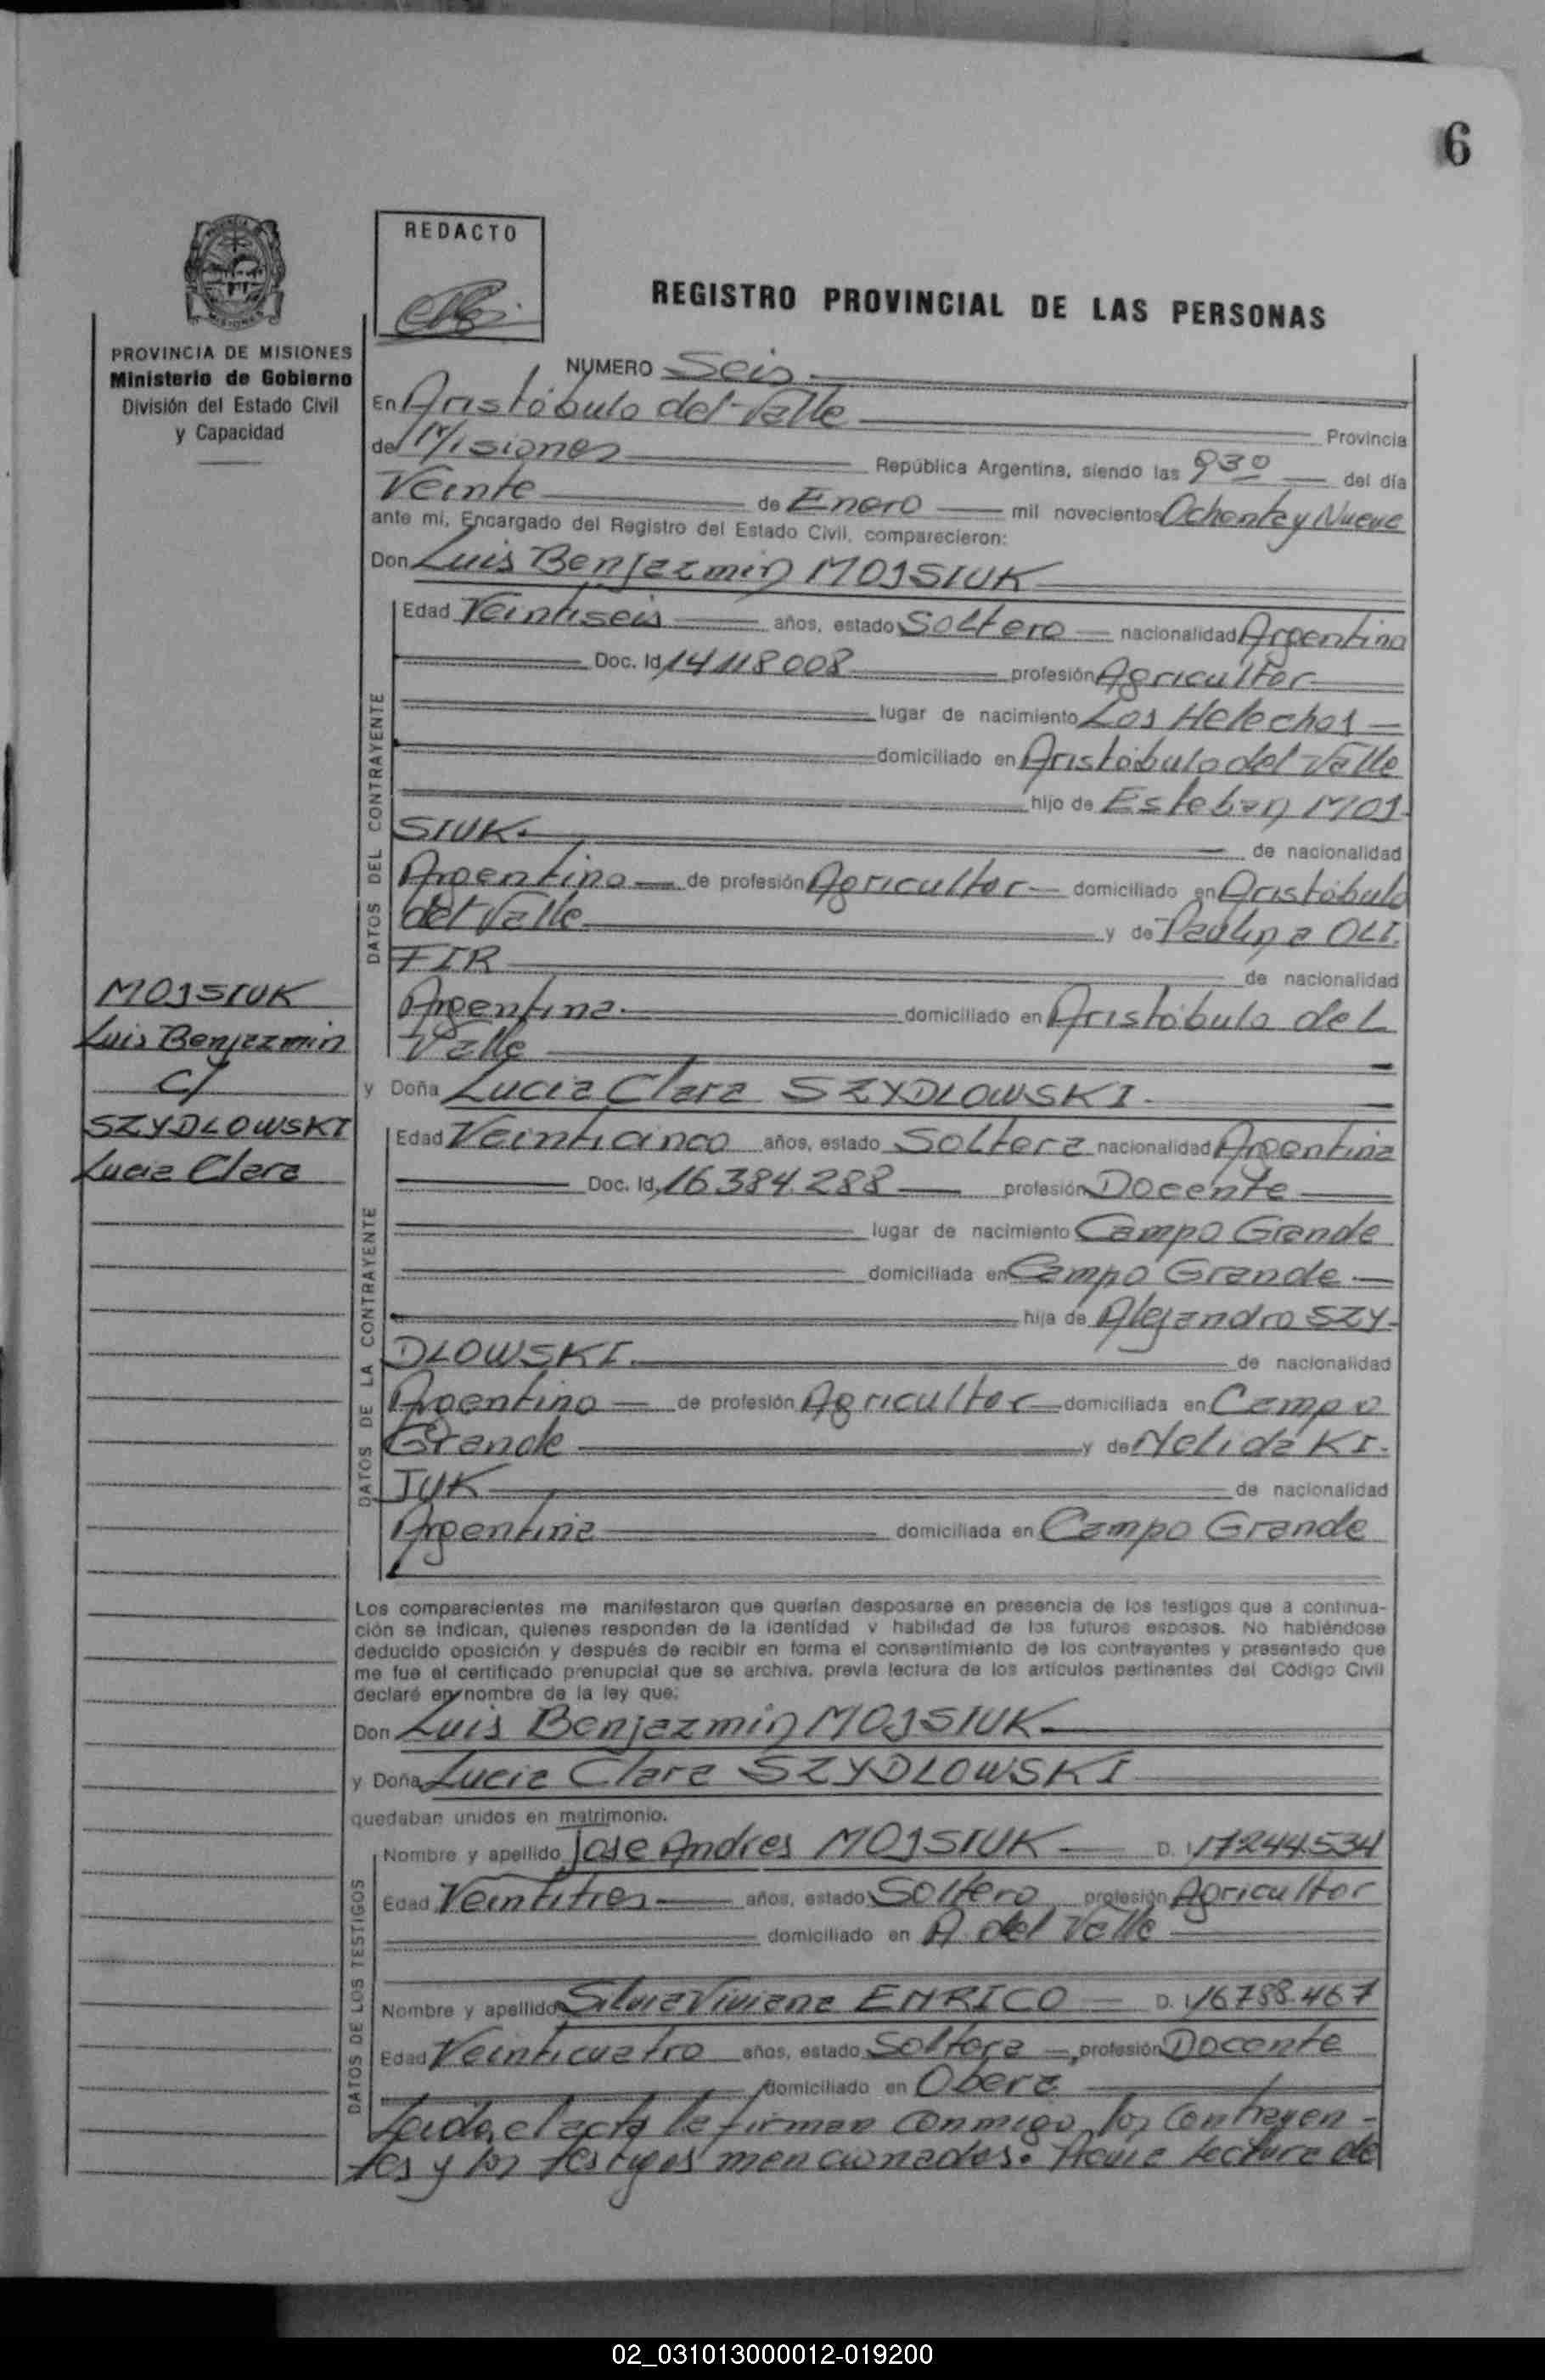 6
REDACTO
REGISTRO PROVINCIAL DE LAS PERSONAS
PROVINCIA DE MISIONES
Ministerio de Gobierno
División del Estado Civil
y Capacidad
NUMERO Seis
En Aristóbulo del Valle Provincia
de Misiones República Argentina, siendo las 930 del día
Veinte de Enero mil novecientos Ochenta y Nueve
ante mí, Encargado del Registro del Estado Civil, comparecieron:
Don Luis Benjazmin MOJSIUK
DATOS DEL CONTRAYENTE
Edad Veintiseis años, estado Soltero nacionalidad Argentino
Doc. Id. 14118008 profesión Agricultor
lugar de nacimiento Los Helechos
domiciliado en Aristóbulo del Valle
hijo de Esteban MOJ-
SIUK. de nacionalidad
Argentino de profesión Agricultor domiciliado en Aristóbulo
del Valle y de Paulina OLI.
FIR de nacionalidad
Argentina. domiciliado en Aristóbulo del
Valle
MOJSIUK
Luis Benjazmin
C/
SZYDLOWSKI
Lucia Clara
y Doña Lucia Clara SZYDLOWSKI.
DATOS DE LA CONTRAYENTE
Edad Veinticinco años, estado Soltera nacionalidad Argentina
Doc. Id. 16.384.288 profesión Docente
lugar de nacimiento Campo Grande
domiciliada en Campo Grande.
hija de Alejandro SZY-
DLOWSKI. de nacionalidad
Argentino de profesión Agricultor domiciliada en Campo
Grande y de Nelida KI-
JUK de nacionalidad
Argentina domiciliada en Campo Grande
Los comparecientes me manifestaron que querían desposarse en presencia de los testigos que a continua-
ción se indican, quienes responden de la identidad y habilidad de los futuros esposos. No habiéndose
deducido oposición y después de recibir en forma el consentimiento de los contrayentes y presentado que
me fue el certificado prenupcial que se archiva, previa lectura de los artículos pertinentes del Código Civil
declaré en nombre de la ley que:
Don Luis Benjazmin MOJSIUK.
y Doña Lucia Clara SZYDLOWSKI
quedaban unidos en matrimonio.
DATOS DE LOS TESTIGOS
Nombre y apellido Jose Andres MOJSIUK D. I. 17244.534
Edad Veintitres años, estado Soltero profesión Agricultor
domiciliado en A. del Valle
Nombre y apellido Silvia Viviana ENRICO D. I. 16788.467
Edad Veinticuatro años, estado Soltera profesión Docente
domiciliado en Obera
Leida el acta la firman conmigo, los Contrayen-
tes y los testigos mencionados. Previa lectura de
02_031013000012-019200